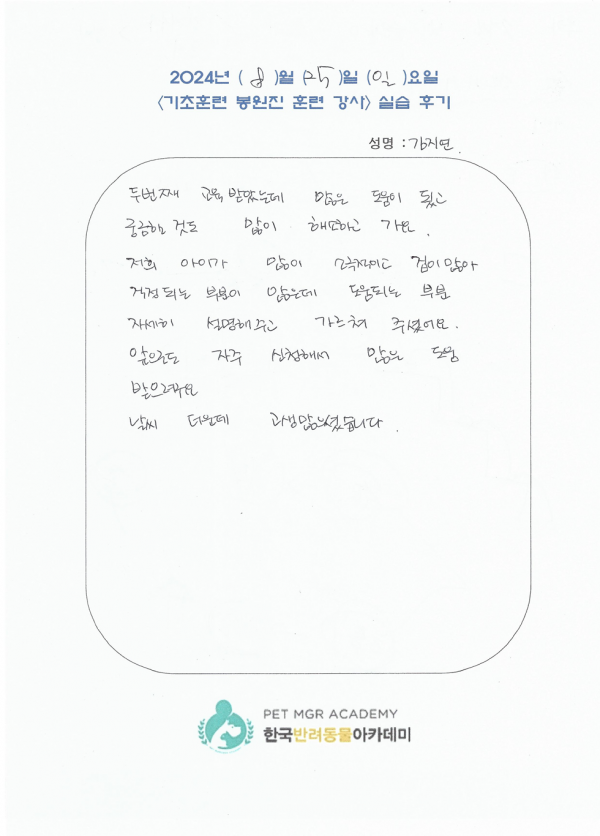 2024년 ( 8 )월 (25)일 (일)요일
<기초훈련 봉원진 훈련 강사> 실습 후기
성명 : 강지연.
두번째 교육 받았는데 많은 도움이 됐고
궁금하는 것도 많이 해소하고 가요.
저희 아이가 많이 소극적이고 겁이 많아
걱정되는 부분이 많은데 도움되는 부분
자세히 설명해주고 가르쳐 주셨어요.
앞으로도 자주 신청해서 많은 도움
받으려구요
날씨 더운데 고생많으셨습니다.
PET MGR ACADEMY
한국반려동물아카데미